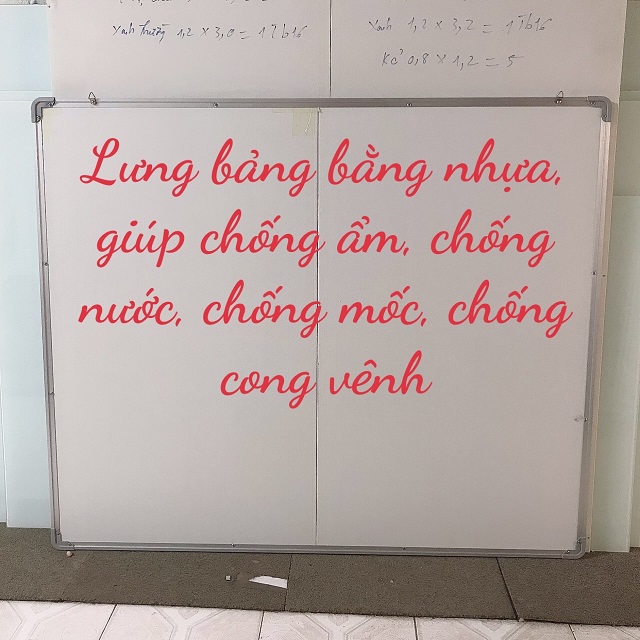 xanh trường 1,2 x 3,0 = 17b16
xanh 1,2 x 3,2 = 17b16
0,8 x 1,2 = 5
Lưng bảng bằng nhựa,
giúp chống ẩm, chống
nước, chống mốc, chống
cong vênh